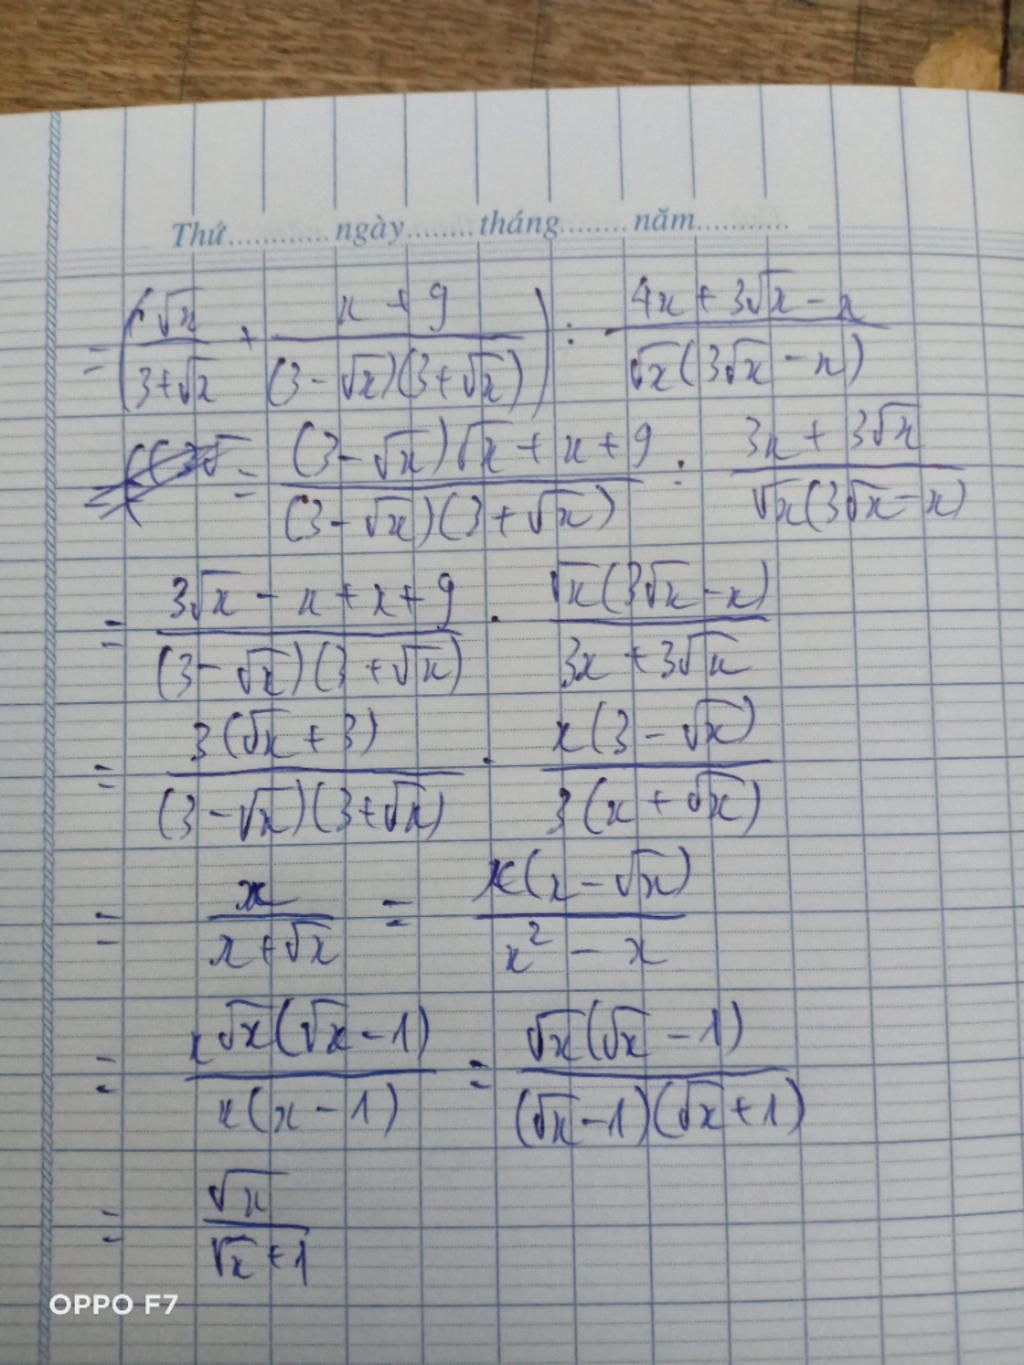 Thứ............ngày........tháng........năm...........
= (√x / (3+√x) + (x + 9) / ((3-√x)(3+√x))) : (4x + 3√x - x) / (√x(3√x - x))
= ((3-√x)√x + x + 9) / ((3-√x)(3+√x)) : (3x + 3√x) / (√x(3√x - x))
= (3√x - x + x + 9) / ((3-√x)(3+√x)) . (√x(3√x - x)) / (3x + 3√x)
= (3(√x + 3)) / ((3-√x)(3+√x)) . (x(3 - √x)) / (3(x + √x))
= x / (x+√x) = (x(x - √x)) / (x² - x)
= (x√x(√x - 1)) / (x(x - 1)) = (√x(√x - 1)) / ((√x - 1)(√x + 1))
= √x / (√x + 1)
OPPO F7